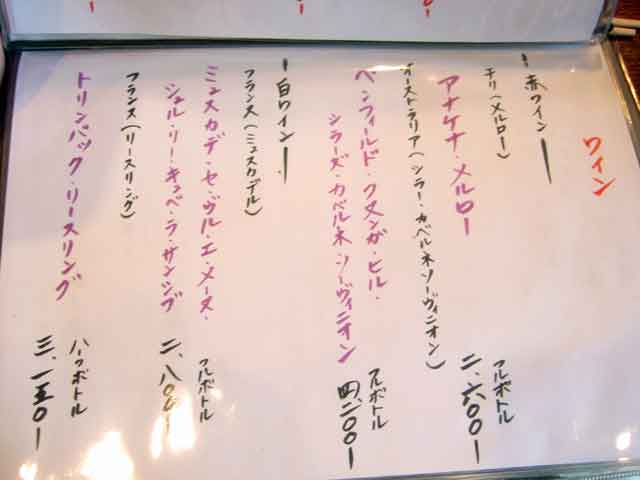 ワイン
ー赤ワインー
チリ(メルロー)
アナケナ・メルロー
フルボトル
二、六〇〇ー
オーストラリア(シラー・カベルネソーヴィニオン)
ペンフィールド・クヌンガ・ヒル・
シラーズ・カベルネ・ソーヴィニオン
フルボトル
四、二〇〇ー
ー白ワインー
フランス(ミュスカデル)
ミュスカデ・セーヴル・エ・メーヌ・
シュル・リー・キュベ・ラ・サンジブ
フルボトル
二、八〇〇ー
フランス(リースリング)
トリンバック・リースリング
ハーフボトル
三、一五〇ー